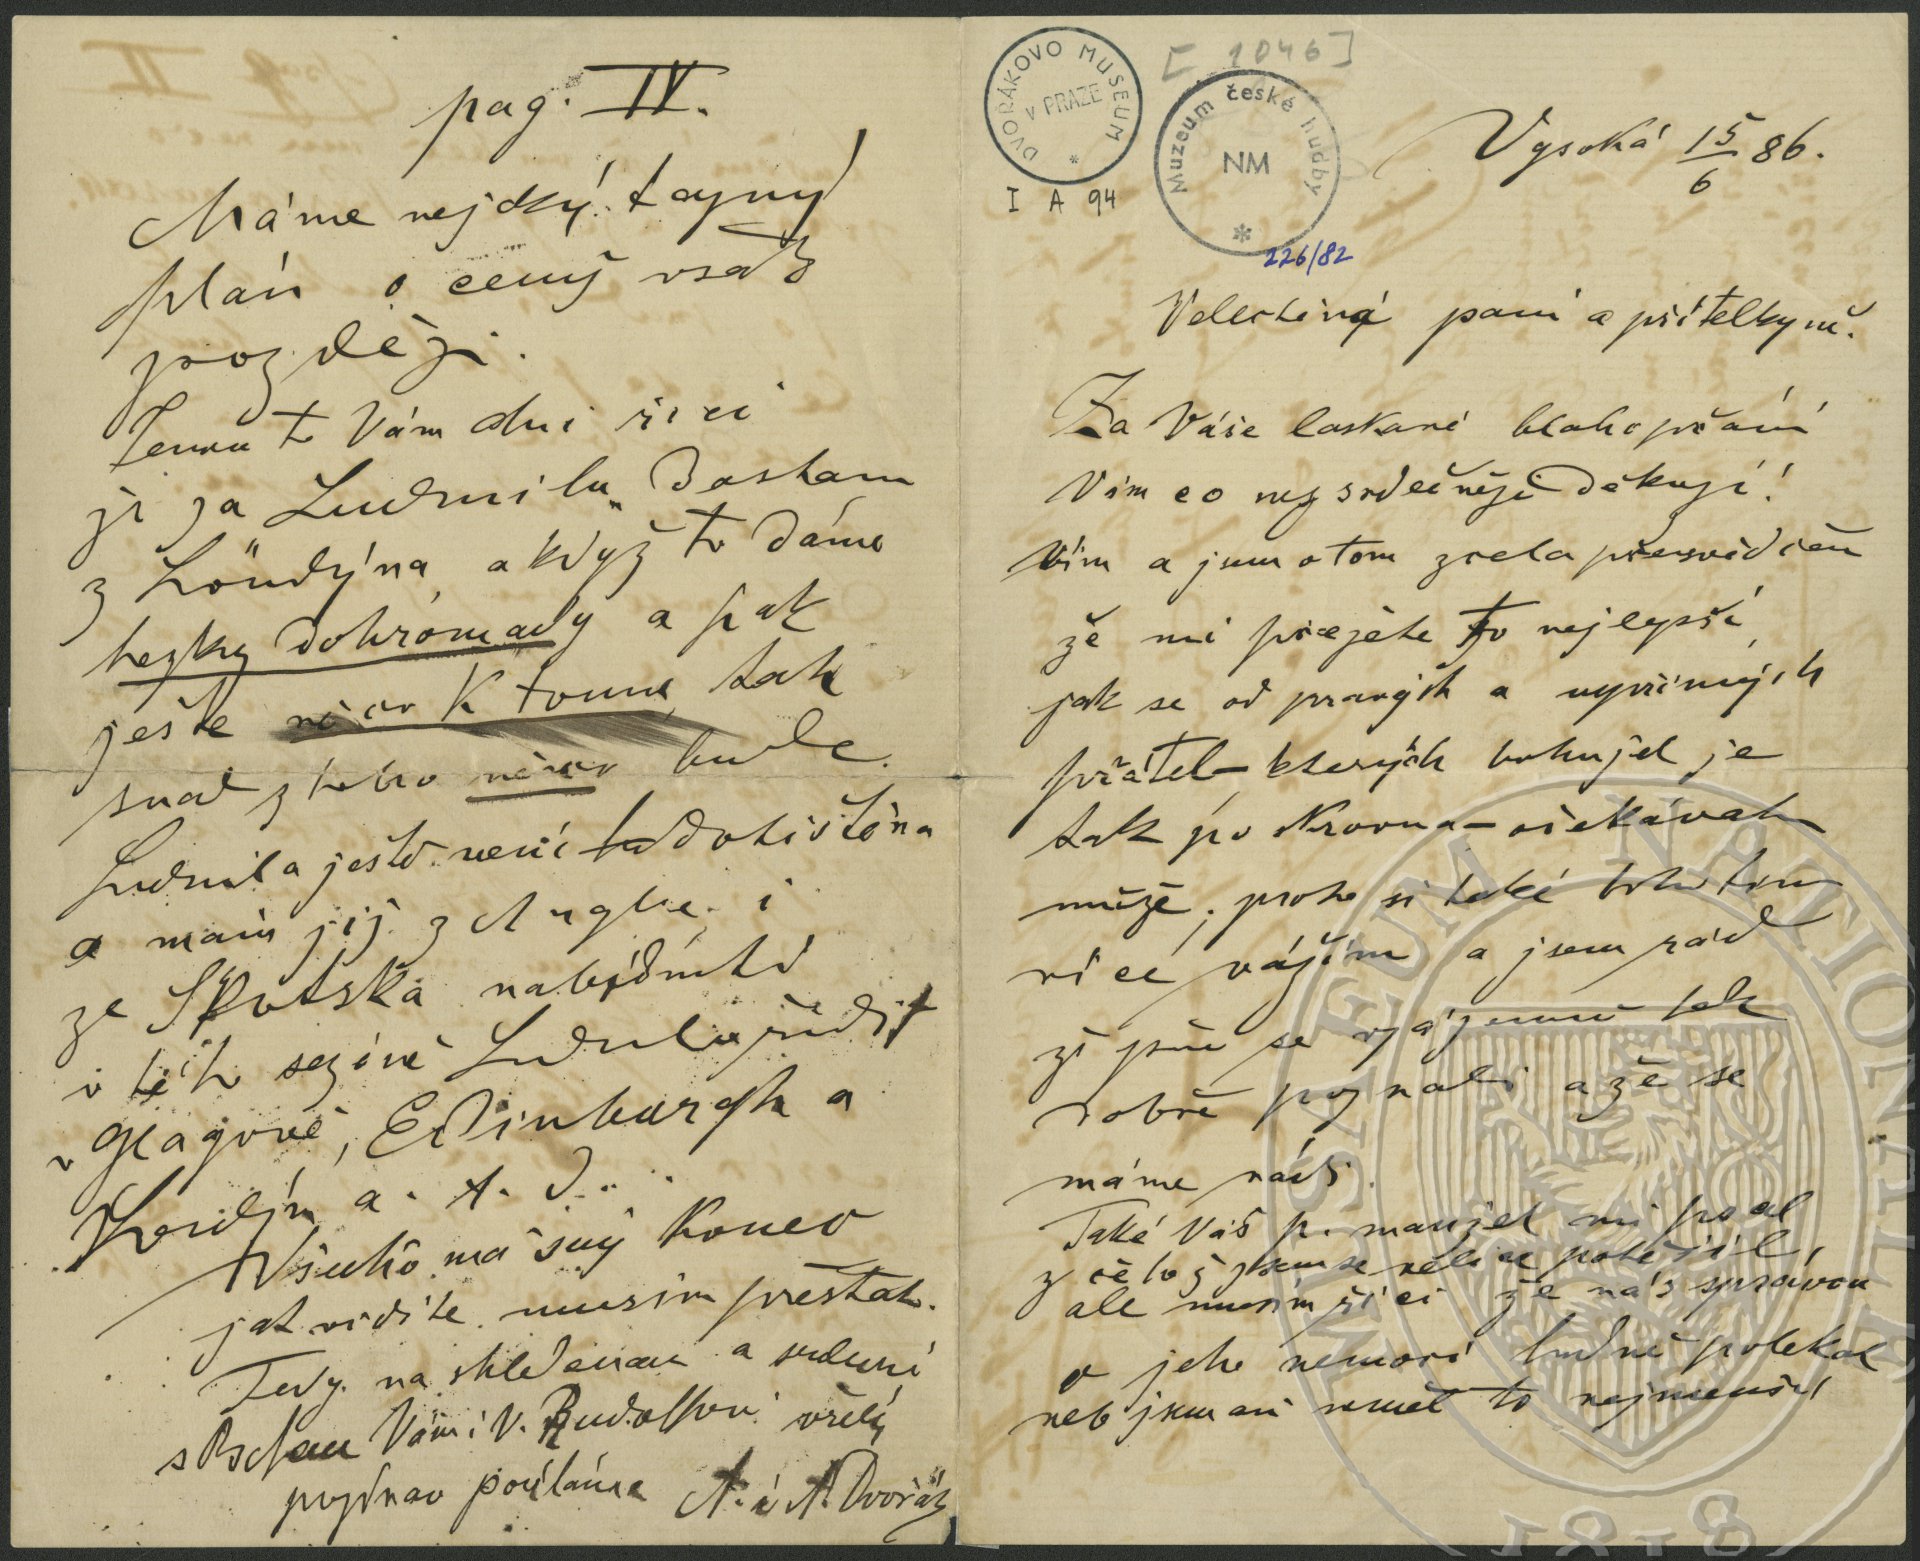 pag. IV.
Máme nějaký tajný
plán o čemž však
později.
Teprv to Vám dnes říci
až za Ludmilu dostanu
z Londýna a když to dáme
hezky dohromady a pak
ještě něco k tomu, tak
snad z toho něco bude.
Ludmila ještě není dotištěna
a mám již z Anglie i
ze Skotska nabídnutí
v této sezóně Ludmilu řídit
v Glagově, Edinburgh a
Londýn a. t. d...
Všecko má svůj konec
jak vidíte musím přestat.
Tedy na shledanou a srdečný
Vám i V. Rudolfovi vřelý
pozdrav posíláme A. i A. Dvořák
DVOŘÁKOVO MUSEUM
V PRAZE
*
I A 94
[1046]
Muzeum české hudby
NM
*
226/82
Vysoká 15/6 86.
Velectěná paní a přítelkyně.
Za Váše laskavé blahopřání
Vám co nejsrdečněji děkuji!
Vím a jsem o tom zcela přesvědčen
že mi přejete to nejlepší,
jak se od pravých a upřímných
přátel – kterých bohužel je
tak po skrovnu – očekávat
může, proto si také toho tím
více vážím a jsem rád
že jsme se vzájemně tak
dobře poznali a že se
máme rádi.
Také Váš p. manžel mi psal
z čehož jsem se velice potěšil,
ale musím říci že nás zprávou
o jeho nemoci hodně polekal
neb jsem ani neměl to nejmenší
MUSAEUM NATIONALE
1818